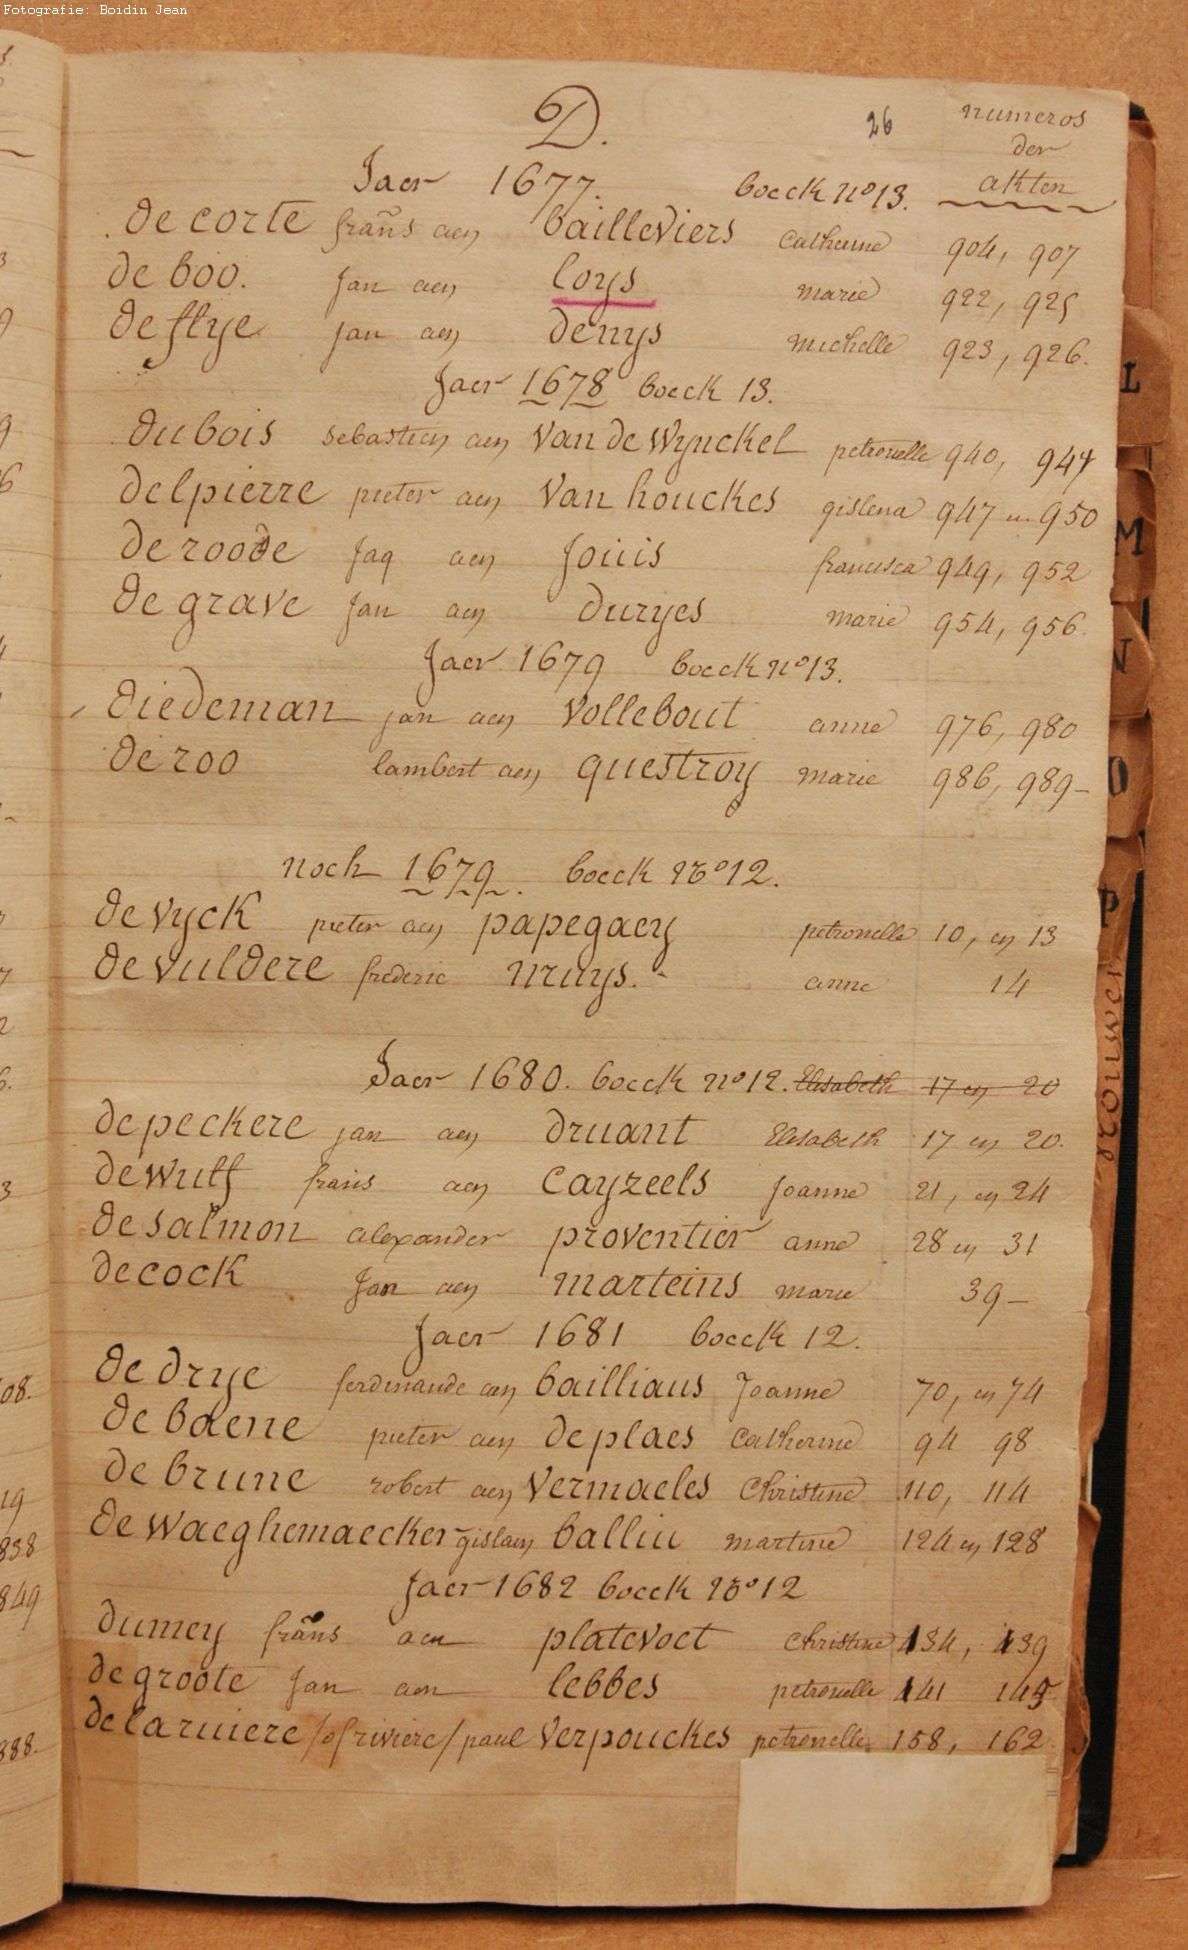 Fotografie: Boidin Jean
D. 26 numeros
der
Jaer 1677. boeck nº 13. akten
de corte frans aen bailleviers catherine 904, 907
de boo. Jan aen loys marie 922, 925
de flye jan aen denys michelle 923, 926.
Jaer 1678 boeck 13.
dubois sebastien aen van de wynckel petronelle 940, 944
delpierre pieter aen van houckes gislena 947 en 950
de roode Jaq aen Jouis francisca 949, 952
de grave Jan aen duryes marie 954, 956.
Jaer 1679 boeck nº 13.
diedeman jan aen vollebout anne 976, 980
de roo lambert aen questroy marie 986, 989-
noch 1679. boeck nº 12.
de vyck pieter aen papegaey petronelle 10, en 13
de vuldere frederic nruys. anne 14
Jaer 1680. boeck nº 12. Elisabeth 17 en 20
de peckere jan aen druant Elisabeth 17 en 20.
de wulf frans aen cayzeels Joanne 21, en 24
de salmon alexander proventier anne 28 en 31
de cock Jan aen marteins marie 39-
Jaer 1681 boeck 12.
de drye ferdinande aen bailliaus Joanne 70, en 74
de baene pieter aen deplaes catherine 94 98
de brune robert aen vermaeles christine 110, 114
de waeghemaecker gislaen balliu martine 124 en 128
Jaer 1682 boeck nº 12
dumey frans aen platevoet christine 134, 139
de groote Jan aen lebbes petronelle 141 145
de laruiere /of riviere/ paul verpouckes petronelle 158, 162
L
M
N
O
P
vrouwen
08.
19
838
849
888.